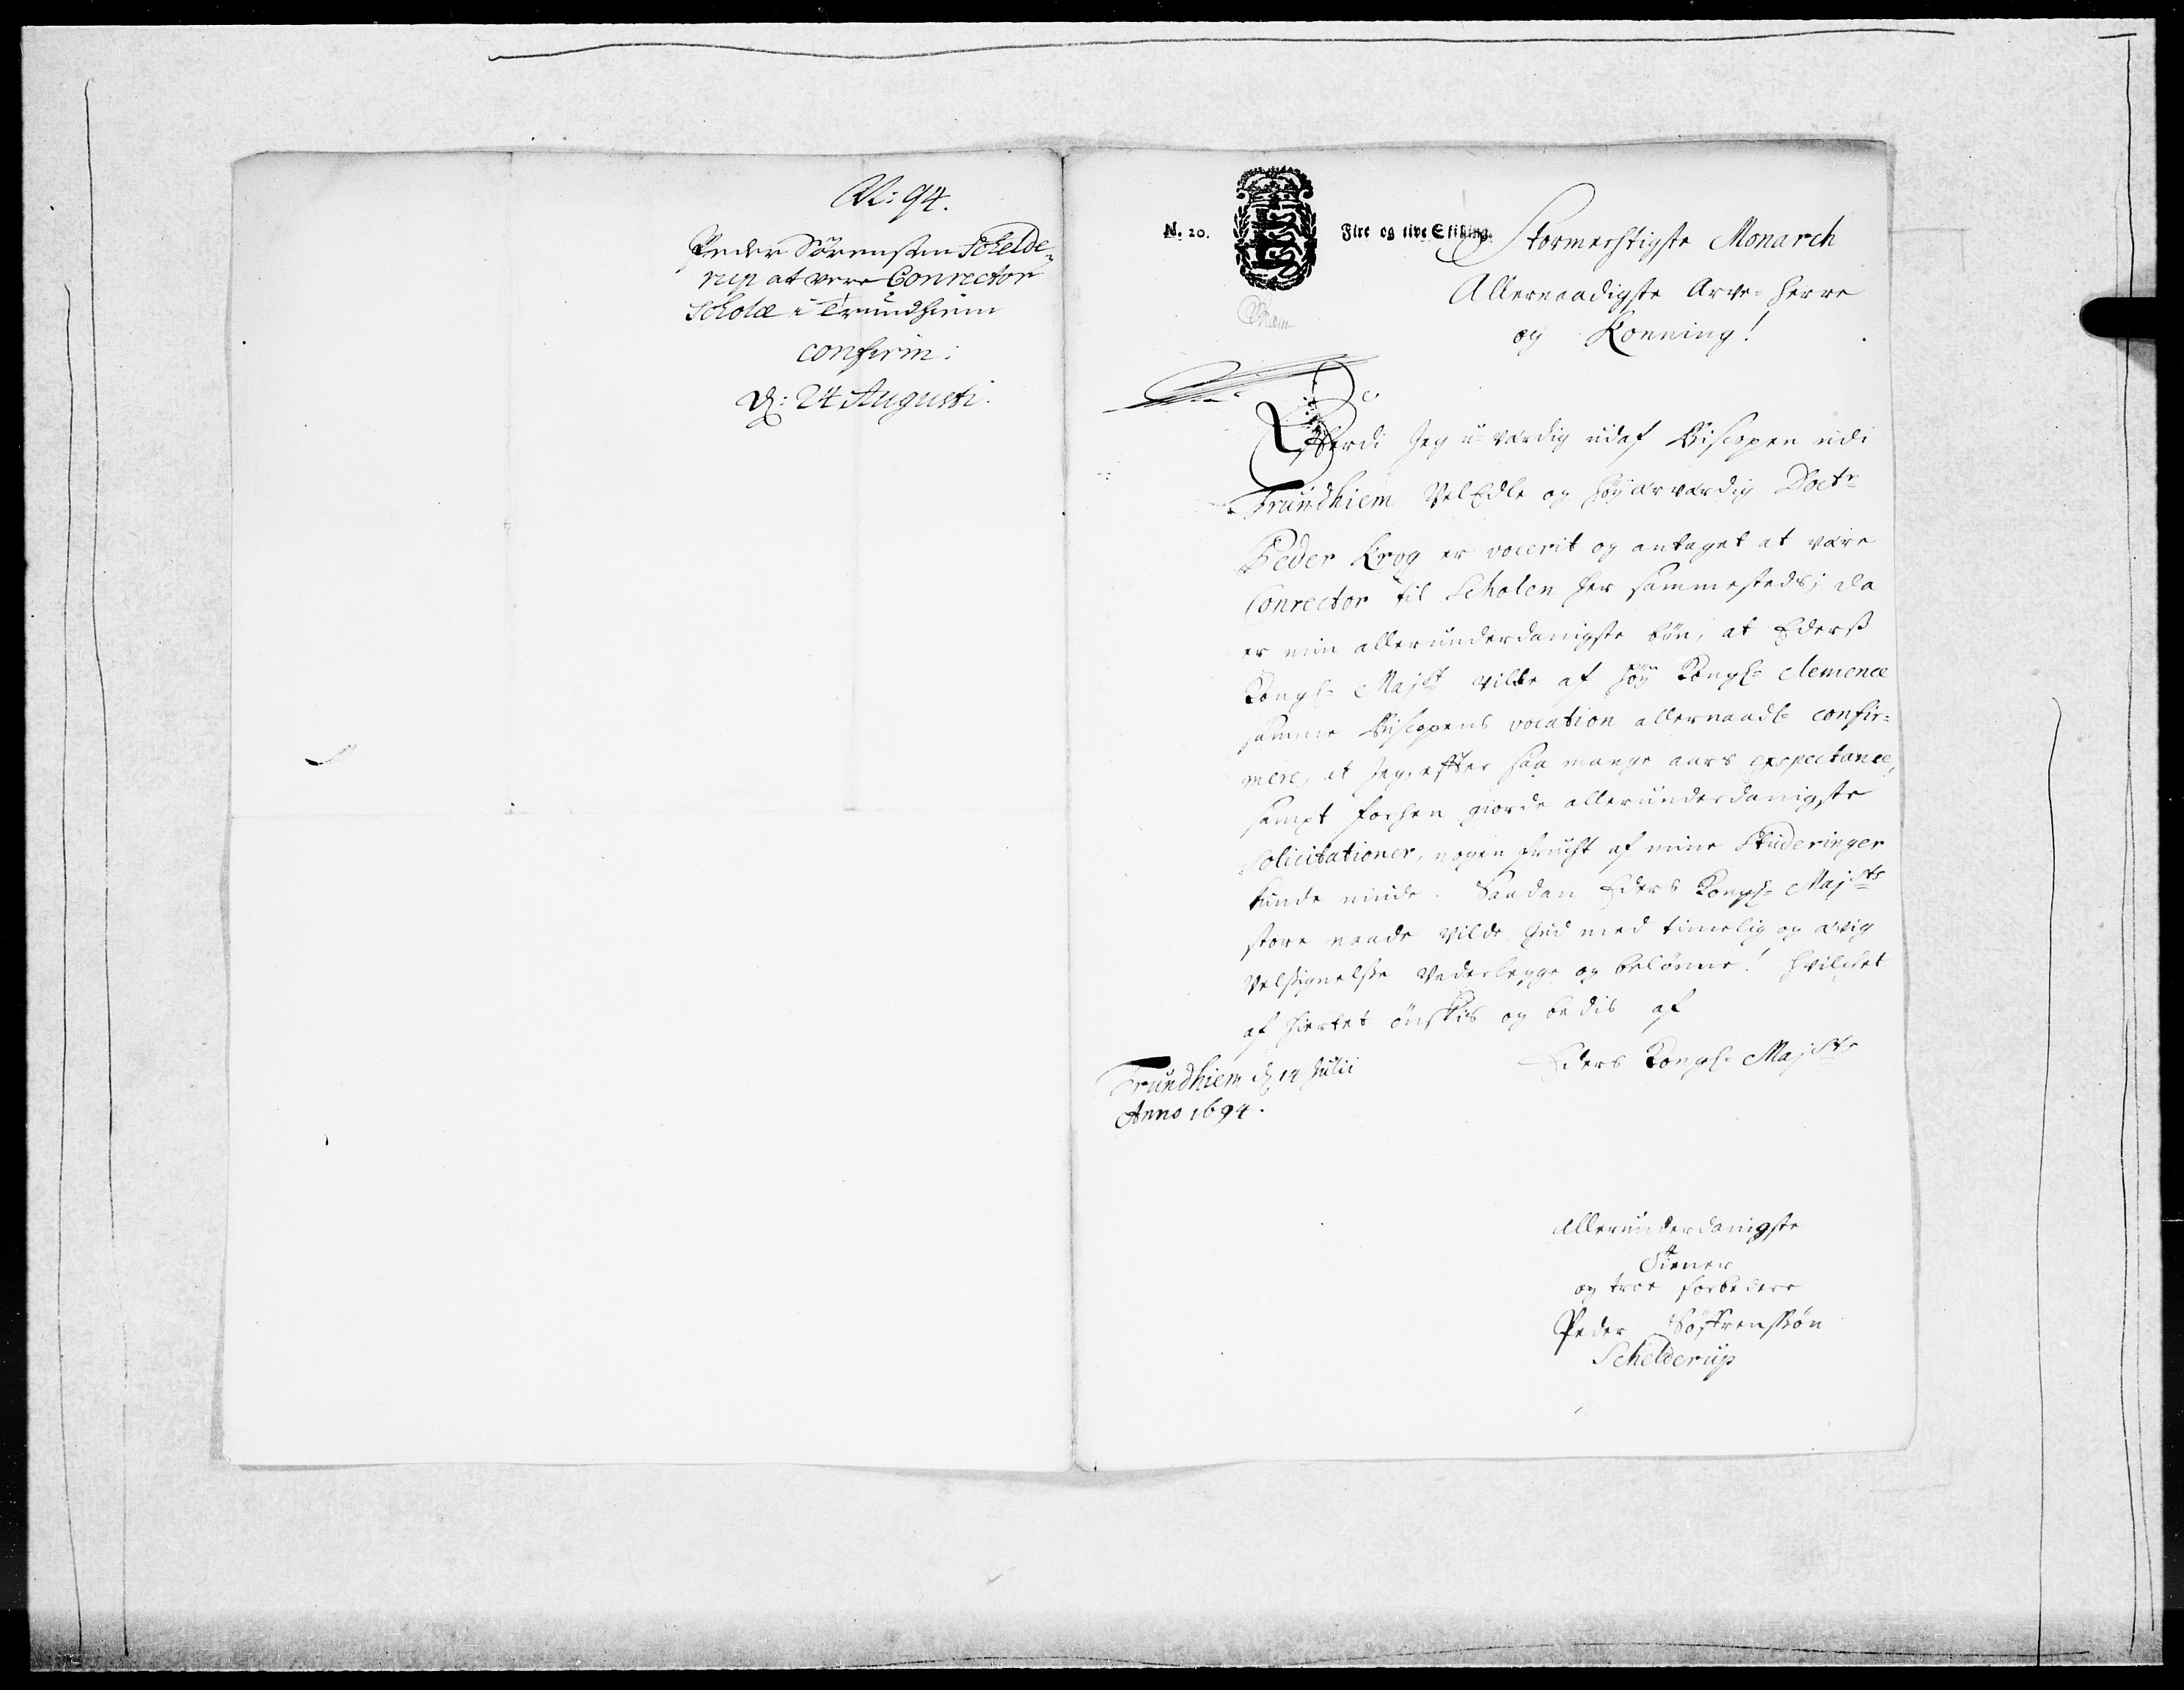 No: 94.
Peder Sörensen Schelde-
rup at være Conrector
Scholæ i Trundhiem
confirm:
d: 24 Augusti.
N. 20. Fire og tive Skilling.
Stormegtigste Monarch
Allernaadigste Arve-Herre
og Konning!
Efterdi Jeg u-værdig udaf Biscopen udi
Trundhiem VelEdle og Höyærværdig Doctr
Peder Krog er vocerit og antaget at være
Conrector til Scholen her sammesteds; da
er min allerunderdanigste bön, at Ederß
Kongl: Majst vilde af höy Kongl: clemence
samme Biscopens vocation allernaadl: confir-
mere, at Jeg, efter saa mange aars expectance,
sampt forhen giorde allerunderdanigste
Solicitationer, nogen frucht af mine Studeringer
kunde niude. Saadan Eders Kongl: Majsts
store naade vilde Gud med timelig og ævig
Velsignelse Vederlegge og belönne! hvilchet
af hiertet önskis og bedis af
Eders Kongl: Majsts
Trundhiem d: 14 Julii
Anno 1694.
allerunderdanigste
Tiener
og troe forbedere
Peder Söffrenssön
Schelderup